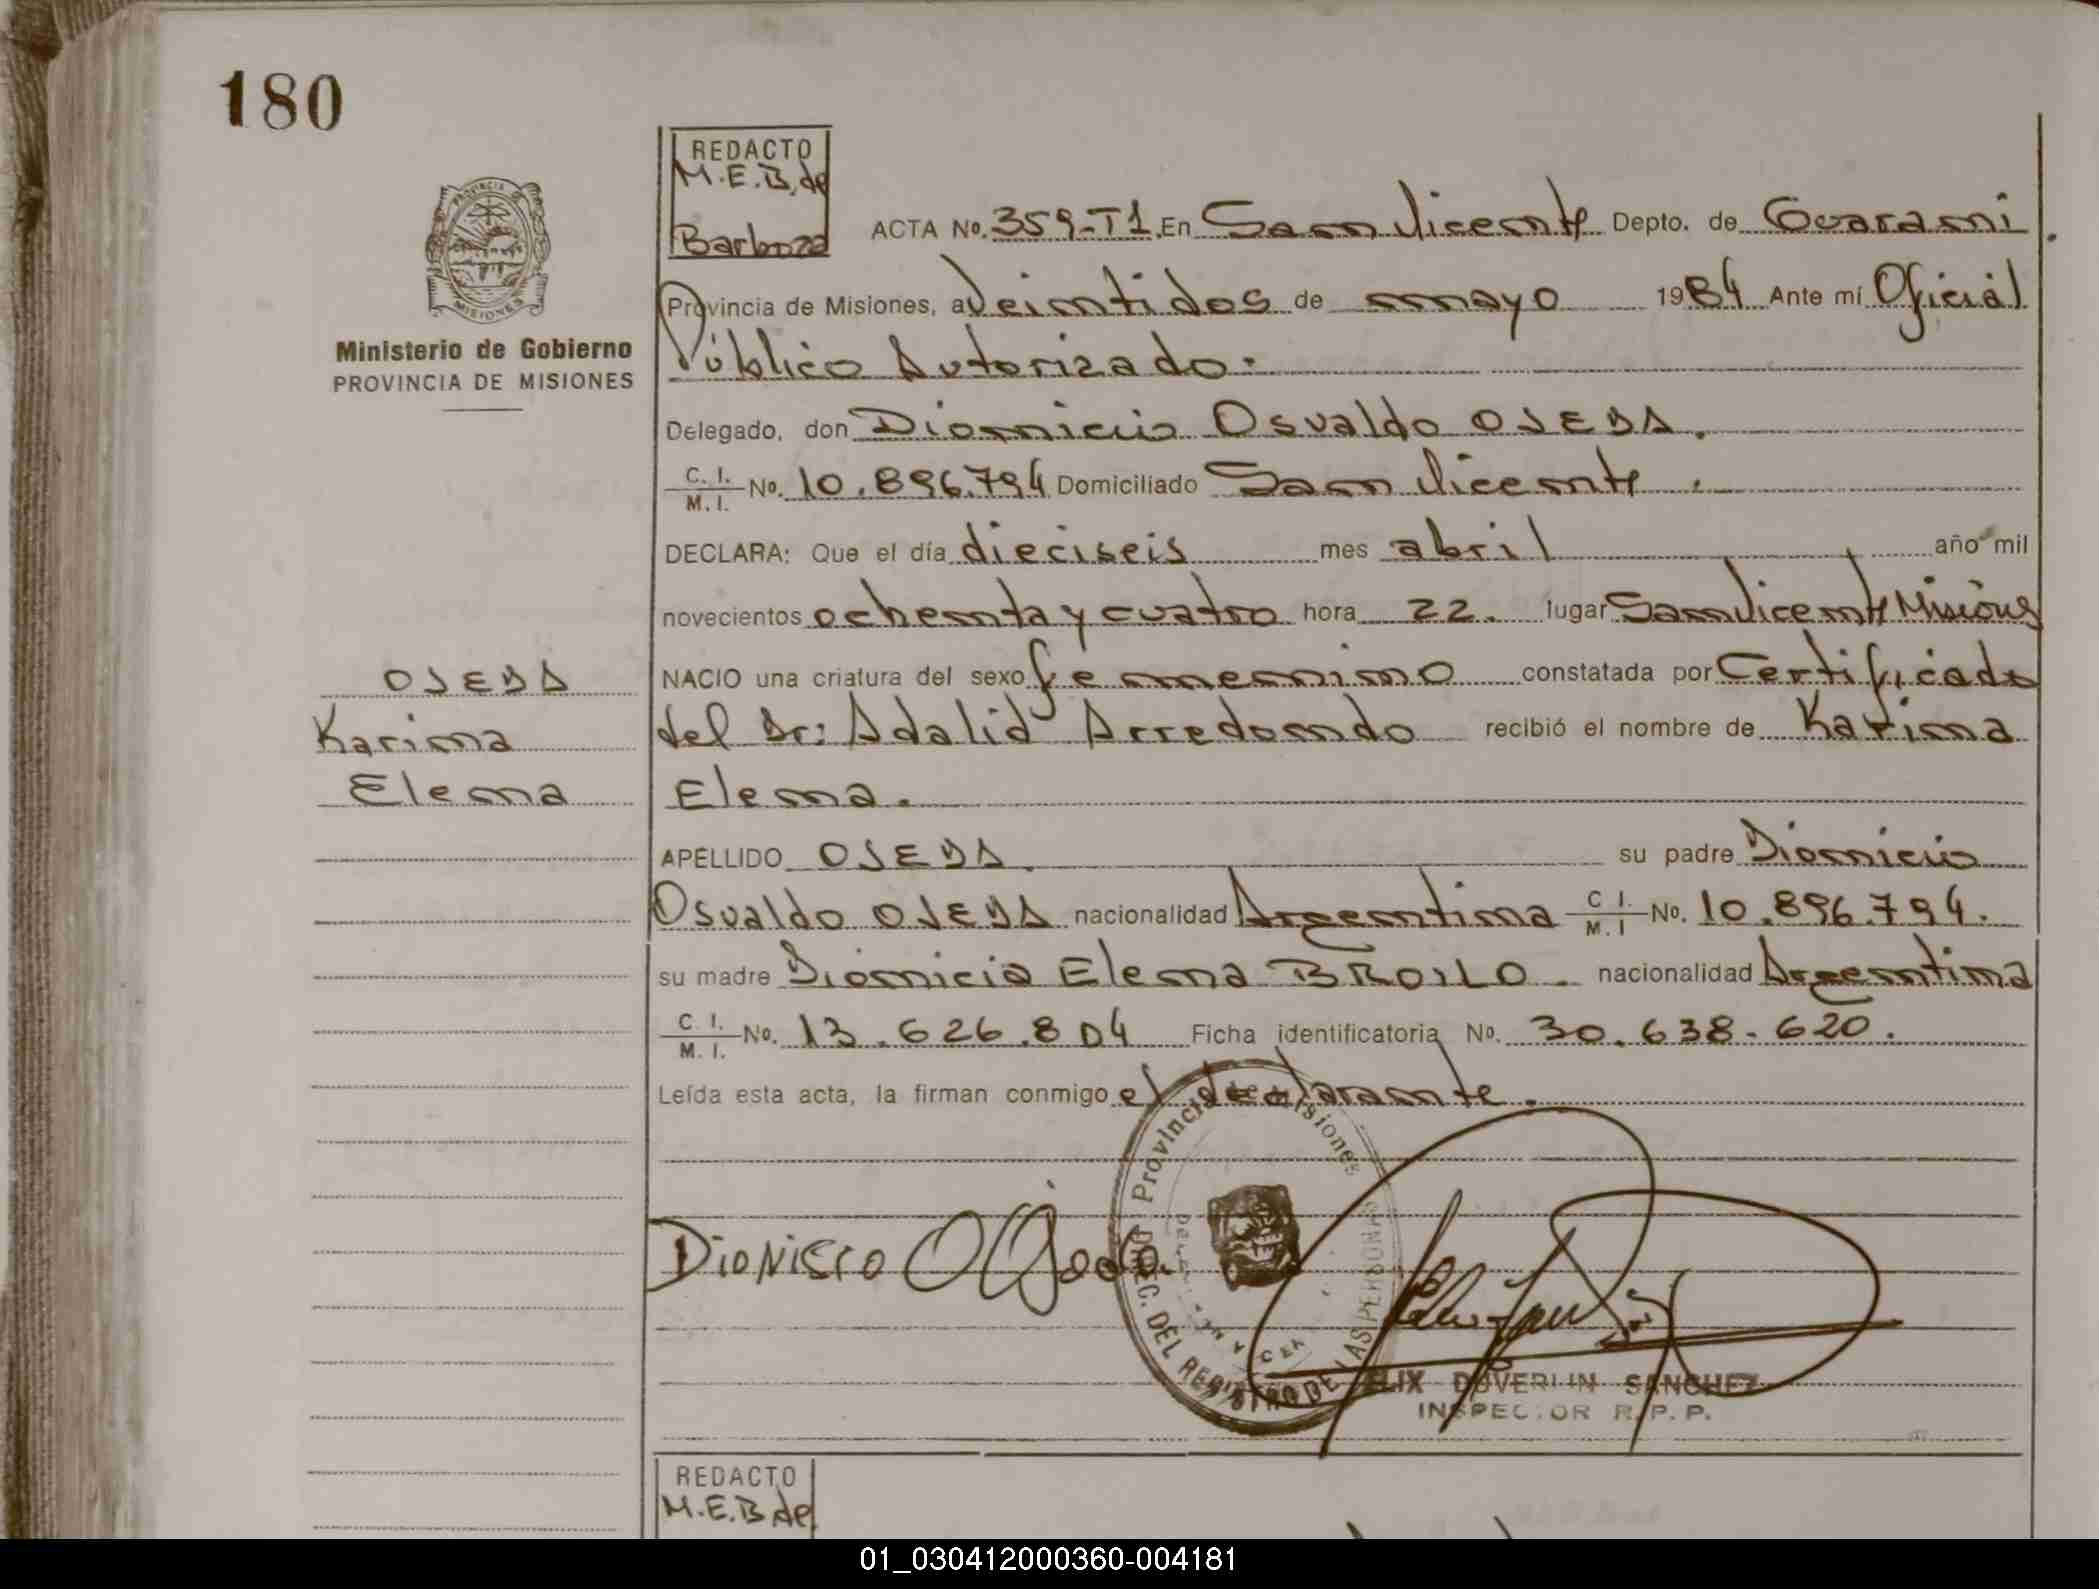 180
REDACTO
M.E.B. de
Barboza
ACTA No. 359-T1. En San Vicente Depto. de Guarani.
Provincia de Misiones, a Veintidos de mayo 1984 Ante mí Oficial
Público Autorizado.
Delegado, don Dionicio Osvaldo OJEDA.
C. I. / M. I. No. 10.896.794 Domiciliado San Vicente.
DECLARA: Que el día dieciseis mes abril, año mil
novecientos ochenta y cuatro hora 22. lugar San Vicente Misiones
NACIO una criatura del sexo femenino constatada por Certificado
del Dr: Adalid Arredondo recibió el nombre de Karina
Elena.
APELLIDO OJEDA su padre Dionicio
Osvaldo OJEDA nacionalidad Argentina C I. / M. I No. 10.896.794.
su madre Dionicia Elena BROILO. nacionalidad Argentina
C. I. / M. I. No. 13.626.804 Ficha identificatoria No. 30.638-620.
Leída esta acta, la firman conmigo el declarante.
PROVINCIA DE
MISIONES
Ministerio de Gobierno
PROVINCIA DE MISIONES
OJEDA
Karina
Elena
Dionisio O Ojeda.
Provincia de Misiones
DIREC. DEL REGISTRO DE LAS PERSONAS
FELIX DUVERLIN SANCHEZ
INSPECTOR R.P.P.
REDACTO
M.E.B de
01_030412000360-004181